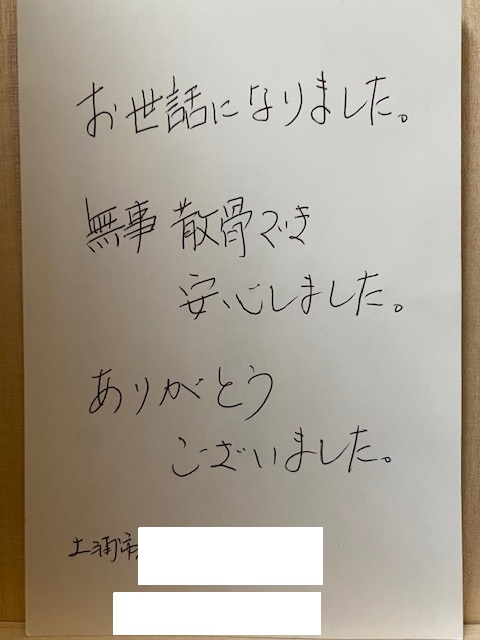 お世話になりました。
無事 散骨でき
安心しました。
ありがとう
ございました。
土浦市